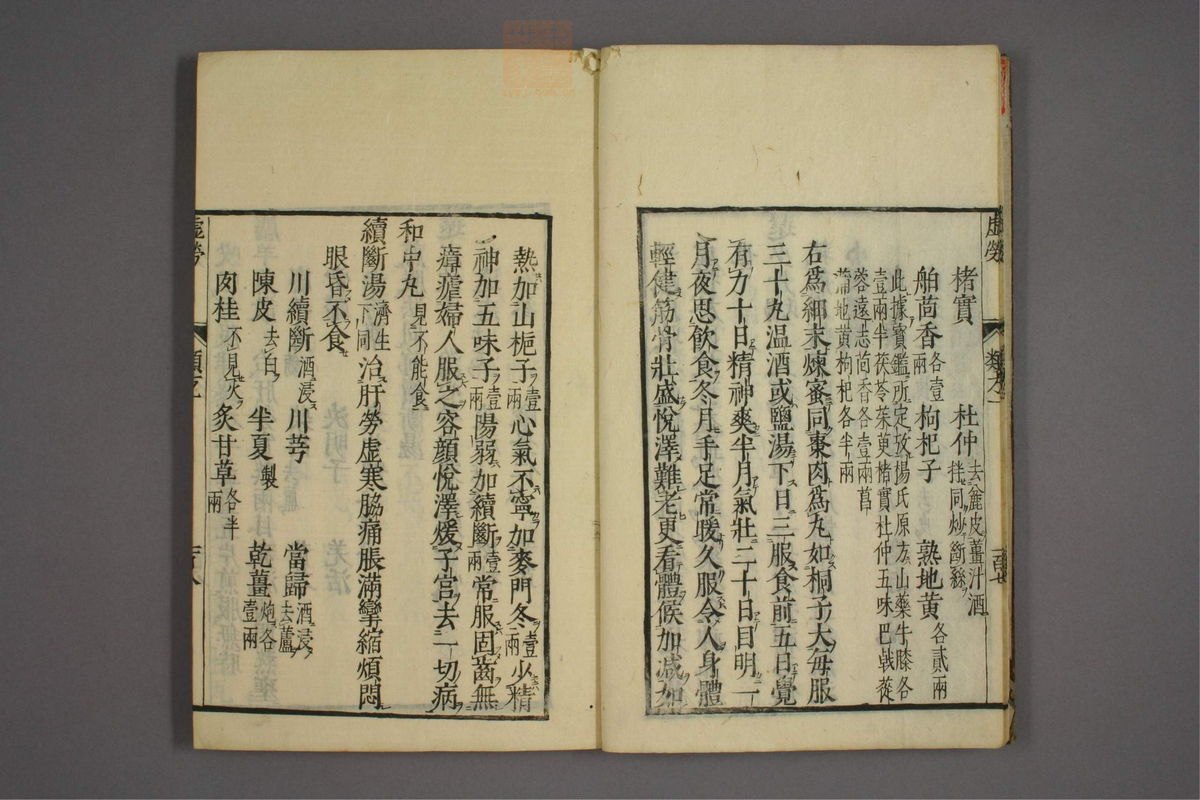 虛勞
楮實　杜仲去麄皮薑汁酒拌同炒斷絲
舶茴香各壹兩　枸杞子　熟地黃各貳兩
此據寶鑑所定故楊氏原方山藥牛膝各
壹兩半茯苓茱萸楮實杜仲五味巴戟蓯
蓉遠志茴香各壹兩菖
蒲地黃枸杞各半兩
右爲細末煉蜜同棗肉爲丸如桐子大每服
三十丸温酒或鹽湯下日三服食前五日覺
有力十日精神爽半月氣壯二十日目明一
月夜思飲食冬月手足常暖久服令人身體
輕健筋骨壯盛悅澤難老更看體候加减如
熱加山梔子壹兩心氣不寧加麥門冬壹兩少精
神加五味子壹兩陽弱加續斷壹兩常服固齒無
瘴瘧婦人服之容顔悅澤煖子宮去一切病
和中丸見不能食
續斷湯濟生下同治肝勞虛寒脇痛脹滿攣縮煩悶
眼昏不食
川續斷酒浸　川芎　當歸酒浸去蘆
陳皮去白　半夏製　乾薑炮各壹兩
肉桂不見火　炙甘草各半兩
虛勞